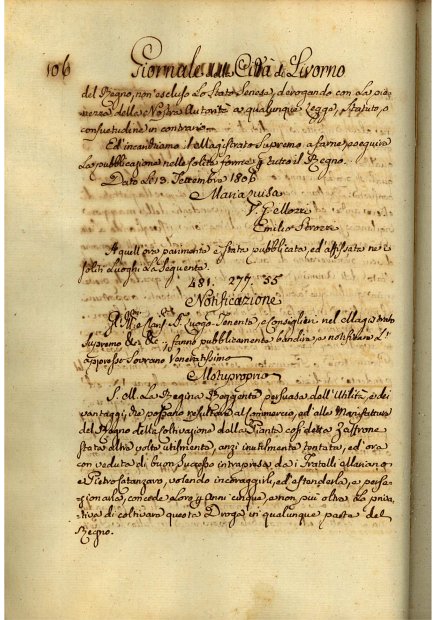 106 Giornale Città di Livorno
del Regno, non escluso Lo Stato Senese, derogando con La pie-
nezza della Nostra Autorità a qualunque Legge, Statuto, o
consuetudine in contrario.
Ed incarichiamo il Magistrato Supremo a farne, eseguire
La pubblicazione nelle solite forme p tutto il Regno.
Dato Le 13. Settembre 1806
Maria Luisa
V. Gellozzi
Emilio Strozzi
A quell'ora parimente è stata pubblicata, ed affissata nei
soliti Luoghi La Seguente.
481. 277. 55
Notificazione
Luogo Tenente, e Consiglieri nel Magistrato
Supremo &c. &c., fanno pubblicamente bandire, e notificare L'
appresso Sovrano Veneratissimo
Motuproprio
S. M. La Regina Reggente persuasa dell'Utilità, e dei
vantaggi, che possono resultare al Commercio, ed alle Manifatture
del Regno dalla coltivazione della Pianta così detta Zaffrone
stata altre volte utilmente, anzi inutilmente tentata, ed ora
con veduta di buon Successo intrapresa da i Fratelli Mariano
e Pietro, volendo incoraggirli, ed estenderla, e perfe-
zionarla, concede a Loro p Anni cinque, e non più oltre La priva-
tiva di coltivare questa Droga in qualunque parte del
Regno.